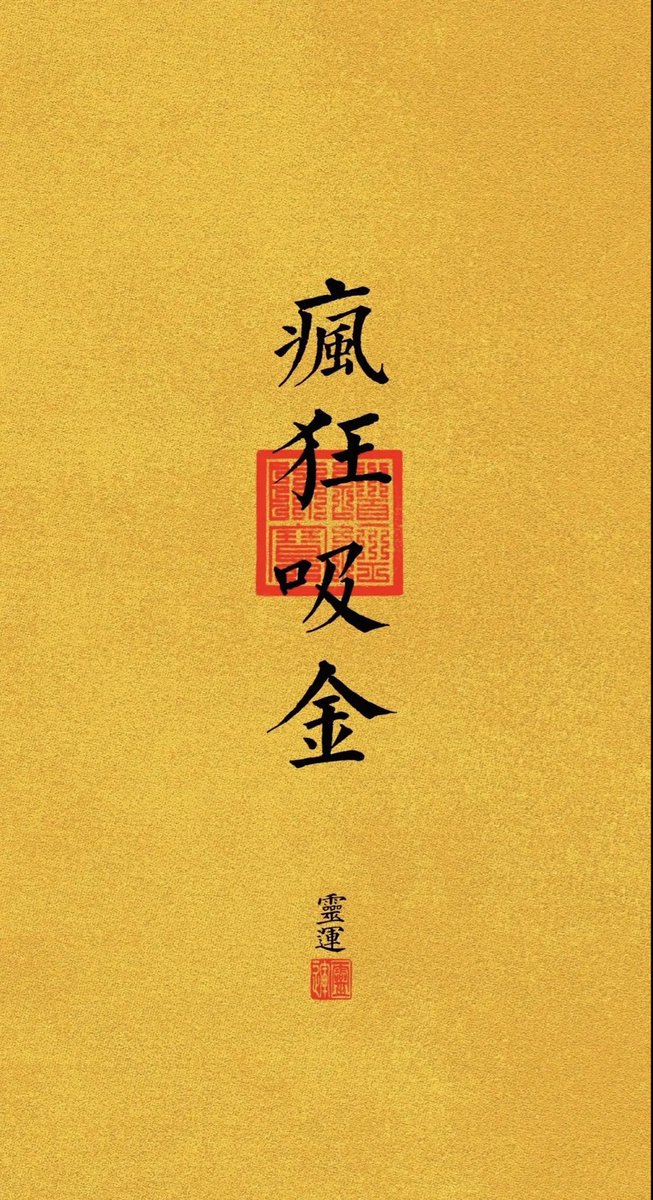 瘋狂吸金
靈運